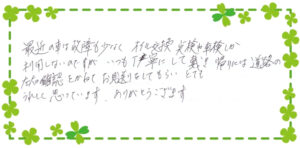 最近の車は故障も少なく オイル交換 点検や車検しか
利用しないのですが いつも丁寧にして戴き 帰りには道路の
左右確認をかねてお見送りをしてもらい とても
うれしく思っています。ありがとうございます